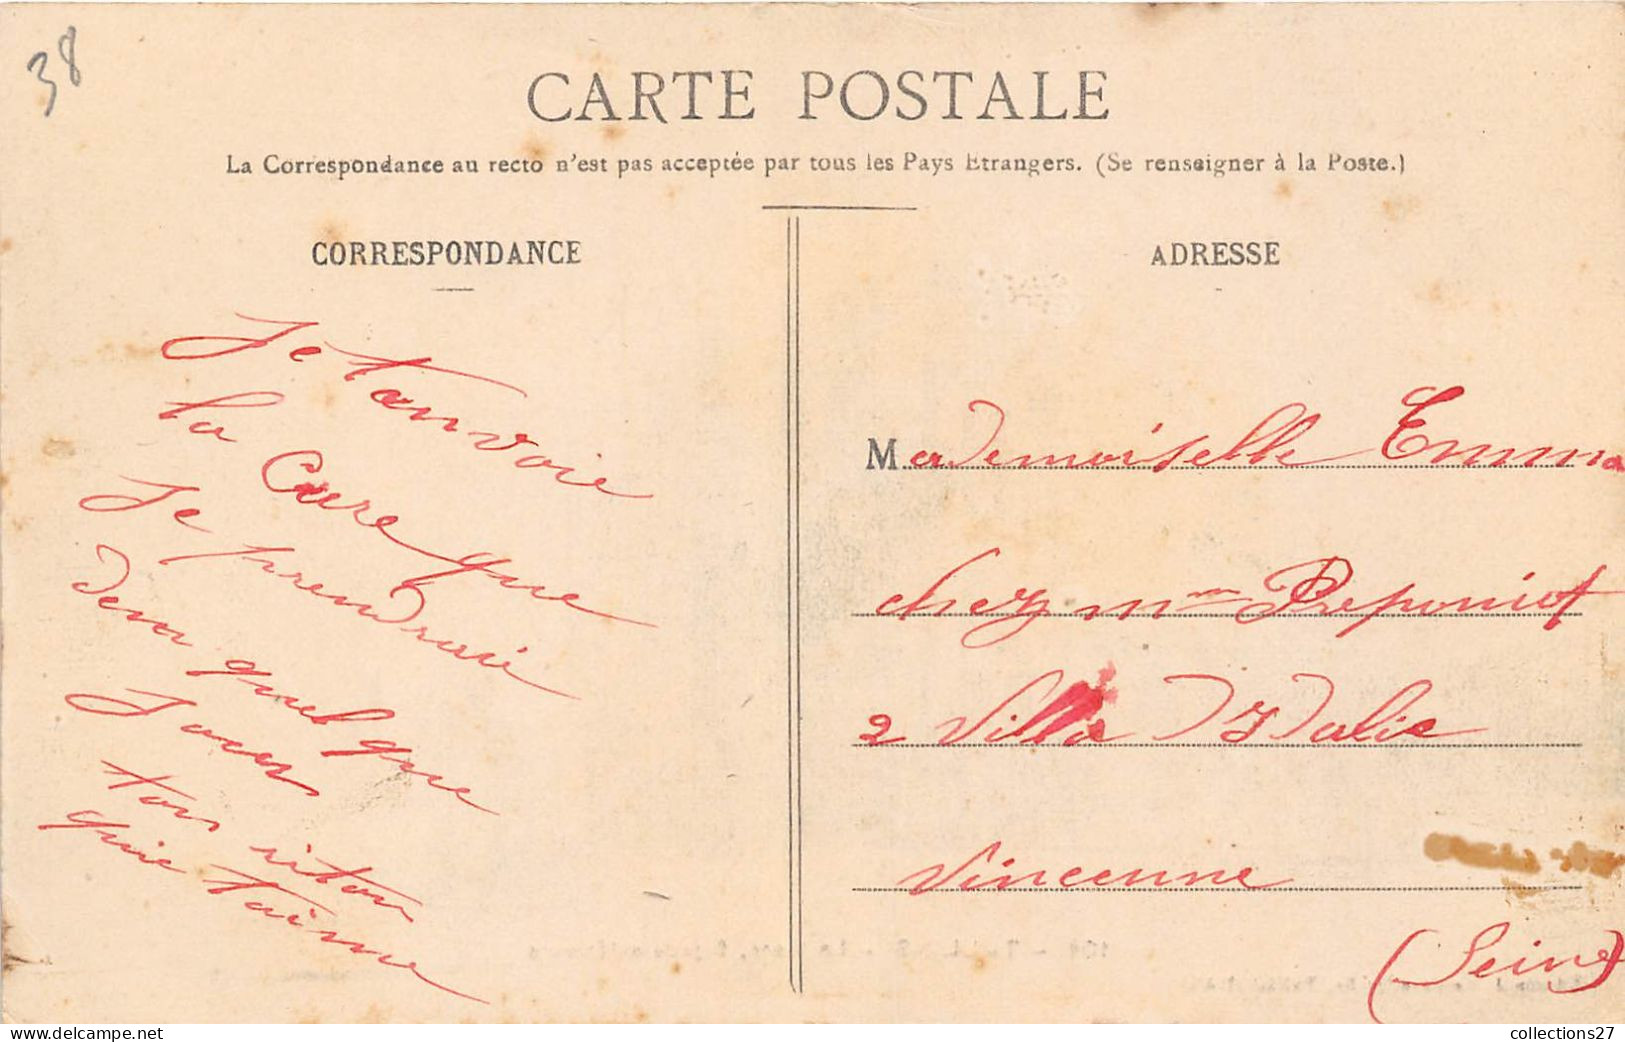 38
CARTE POSTALE
La Correspondance au recto n'est pas acceptée par tous les Pays Etrangers. (Se renseigner à la Poste.)
CORRESPONDANCE
Je tanvoie
la Care que
Je prendrai
den quelque
Jour
ton riton
quie taime
ADRESSE
Mademoiselle Emma
chez mme Preponiot
2 Villa D'Italie
Vincenne
(Seine)
collections27